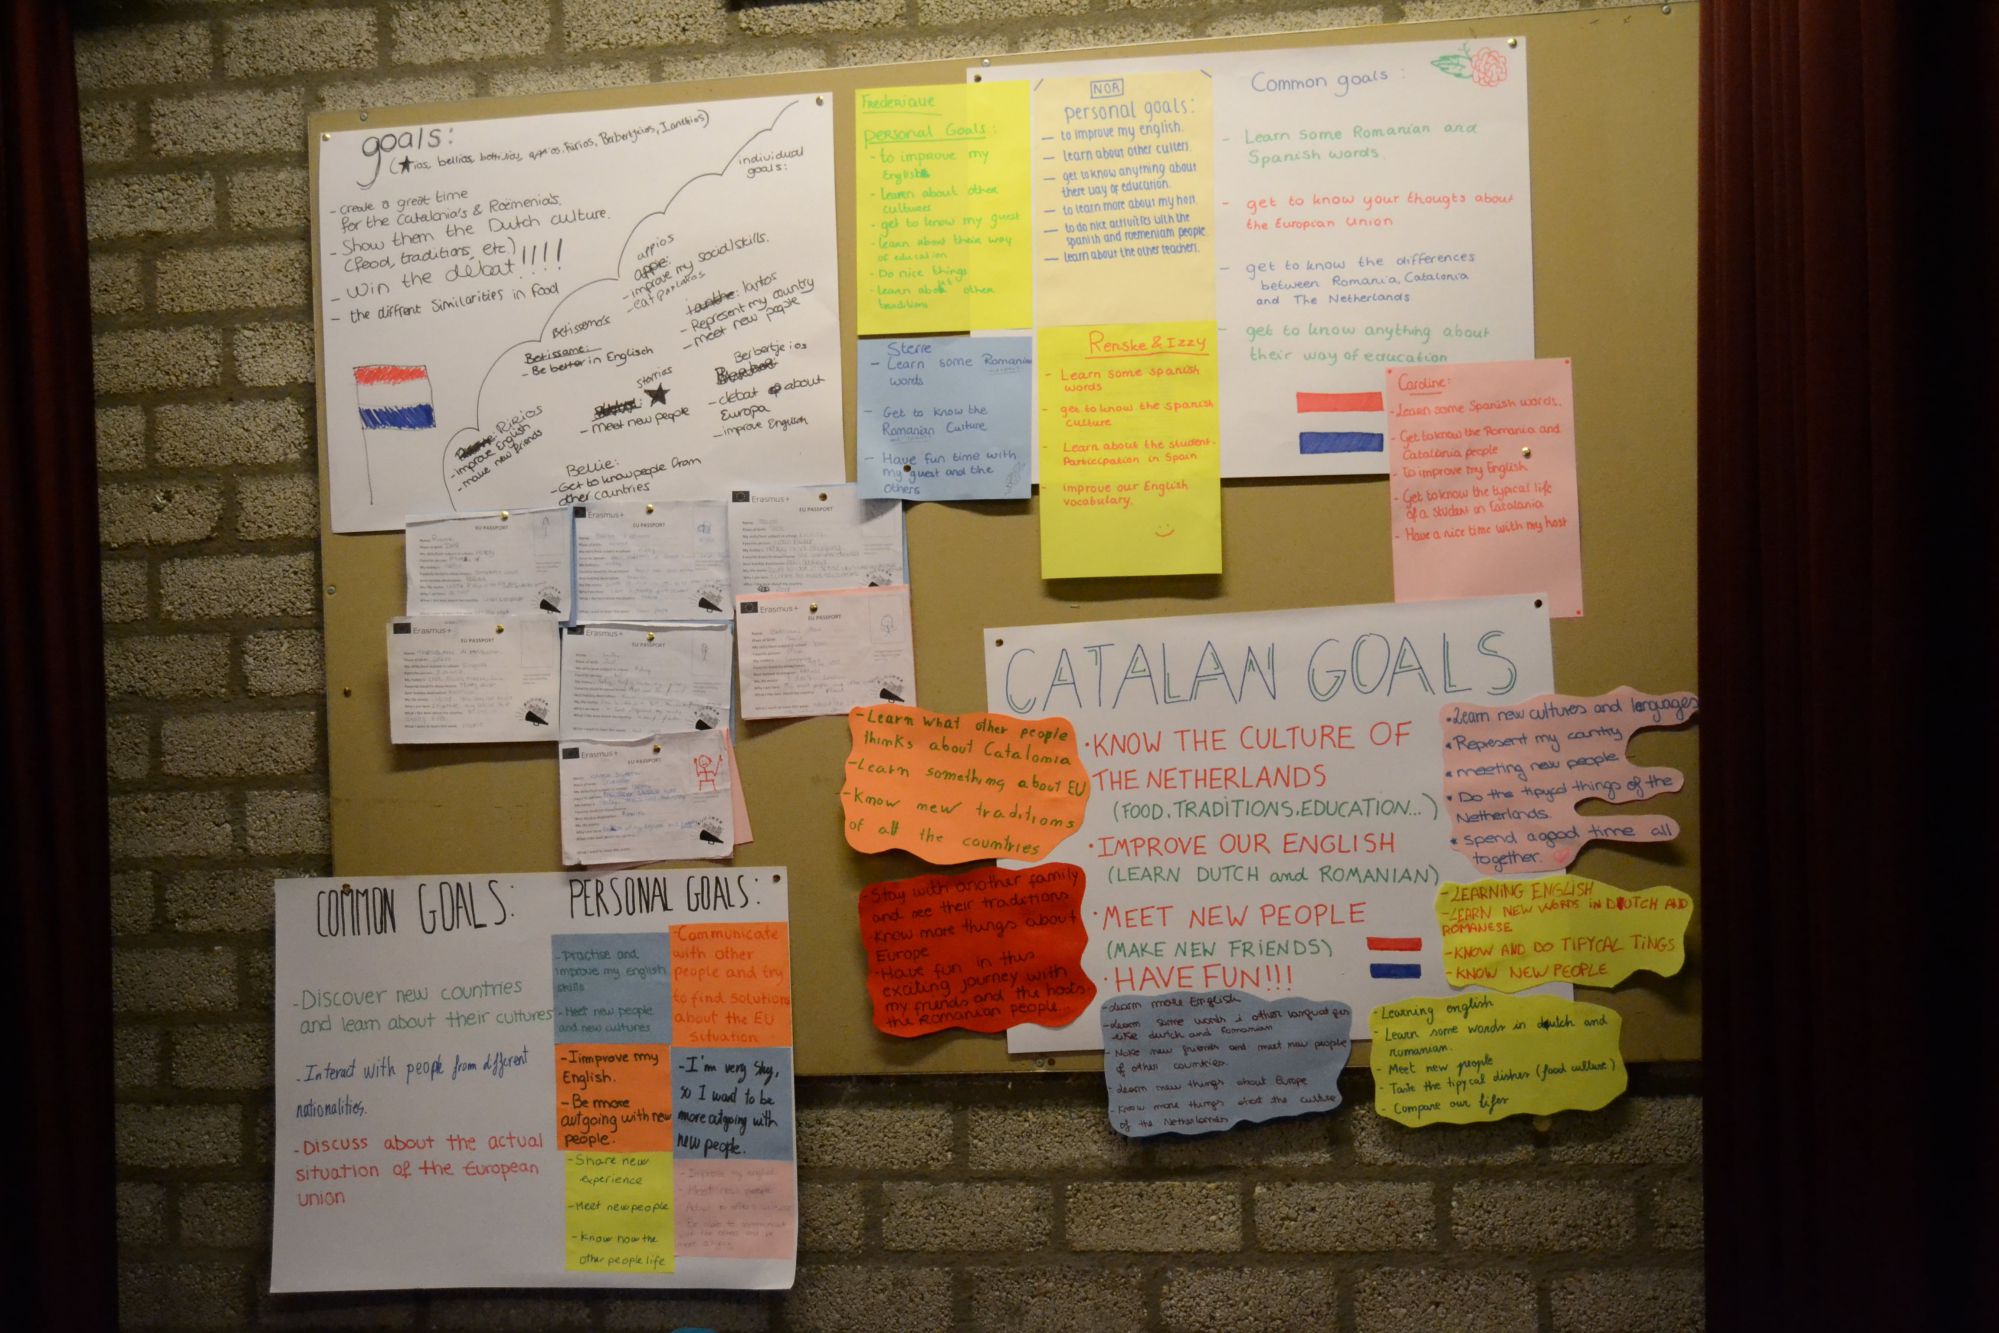 goals:
- create a great time
for the Catalonia's & Roemenia's.
- Show them the Dutch culture.
(food, traditions, etc.)
- Win the debat!!!!
- the diffrent similarities in food
individual
goals:
appios
- improve my social skills.
Iantos
- Represent my country
- meet new people
Betissamo's
- Be better in Englisch
sterrios
- meet new people
Berbertje ios
- debat about
Europa
- improve English
- improve English
- make new friends
Bellie:
- Get to know people from
other countries
Frederique
personal Goals:
- to improve my
English
- learn about other
cultures
- get to know my guest
- learn about their way
of education
- Do nice things
- Learn about other
traditions
NOA
personal goals:
— to improve my english.
— learn about other culters.
— get to know anything about
there way of education.
— to learn more about my host.
— to do nice activities with the
spanish and roemeniam people.
— learn about the other teachers.
Common goals:
- Learn some Romanian and
Spanish words.
- get to know your thougts about
the European Union
- get to know the differences
between Romania, Catalonia
and The Netherlands
- get to know anything about
their way of education
Sterre
- Learn some Romanian
words
- Get to know the
Romanian Culture
- Have fun time with
my guest and the
others
Renske & Izzy
- Learn some spanish
words
- get to know the spanish
culture
- Learn about the student-
Participation in Spain
- improve our English
vocabulary.
Caroline:
- Learn some Spanish words.
- Get to know the Romania and
Catalonia people
- To improve my English
- Get to know the typical life
of a student in Catalonia
- Have a nice time with my host
Erasmus+
EU PASSPORT
Erasmus+
EU PASSPORT
Erasmus+
EU PASSPORT
Erasmus+
EU PASSPORT
Erasmus+
EU PASSPORT
Erasmus+
EU PASSPORT
Erasmus+
EU PASSPORT
CATALAN GOALS
· KNOW THE CULTURE OF
THE NETHERLANDS
(FOOD, TRADITIONS, EDUCATION...)
· IMPROVE OUR ENGLISH
(LEARN DUTCH and ROMANIAN)
· MEET NEW PEOPLE
(MAKE NEW FRIENDS)
· HAVE FUN!!!
- Learn what other people
thinks about Catalonia
- Learn something about EU
- Know new traditions
of all the countries
- Stay with another family
and see their traditions
- Know more things about
Europe
- Have fun in this
exciting journey with
my friends and the hosts,
the Romanian people...
• Learn new cultures and languages
• Represent my country
• meeting new people
• Do the tipycal things of the
Netherlands.
• Spend a good time all
together.
- LEARNING ENGLISH
- LEARN NEW WORDS IN DUTCH AND
ROMANESE
- KNOW AND DO TIPYCAL TINGS
- KNOW NEW PEOPLE
- Learn more English
- Learn some words i other languatges
like dutch and Romanian
- Make new friends and meet new people
of other countries.
- Learn new things about Europe
- Know more things about the culture
of the Netherlands
- Learning english
- Learn some words in dutch and
rumanian.
- Meet new people
- Taste the tipycal dishes (food culture)
- Compare our lifes
COMMON GOALS:
- Discover new countries
and learn about their cultures
- Interact with people from different
nationalities.
- Discuss about the actual
situation of the European
union
PERSONAL GOALS:
- Practise and
improve my english
skills
- Meet new people
and new cultures
- Communicate
with other
people and try
to find solutions
about the EU
situation
- Iimprove my
English.
- Be more
outgoing with new
people.
- I'm very shy,
so I want to be
more outgoing with
new people.
- Share new
experience
- Meet new people
- Know how the
other people life
- Improve my english
- Meet new people